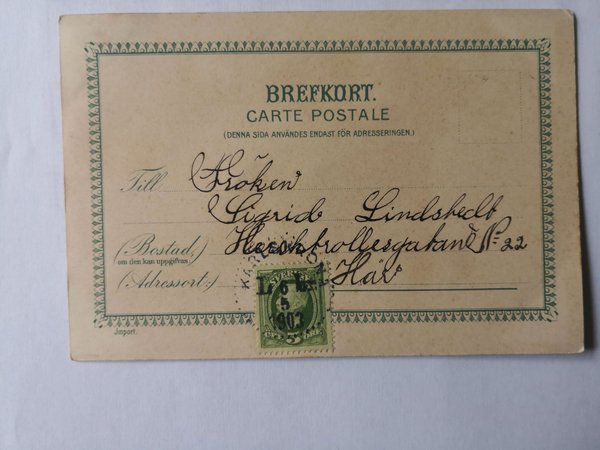 BREFKORT.
CARTE POSTALE
(DENNA SIDA ANVÄNDES ENDAST FÖR ADRESSERINGEN.)
Till Fröken
Sigrid Lindstedt
(Bostad, № 22
om den kan uppgifvas)
(Adressort:) Här
SVERIGE
6
5
1903
Import.